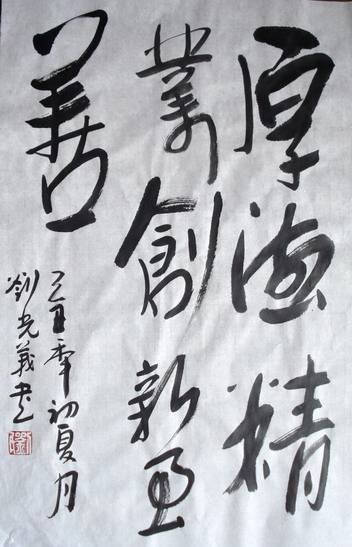 厚德精
業創新至
善
己丑年初夏月
劉光義书